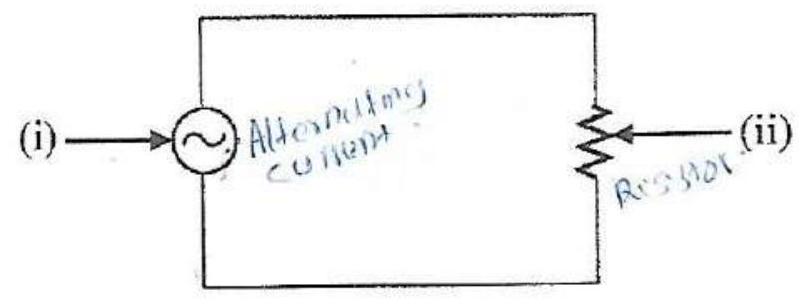 (i)
Alternating
current
(ii)
Resistor